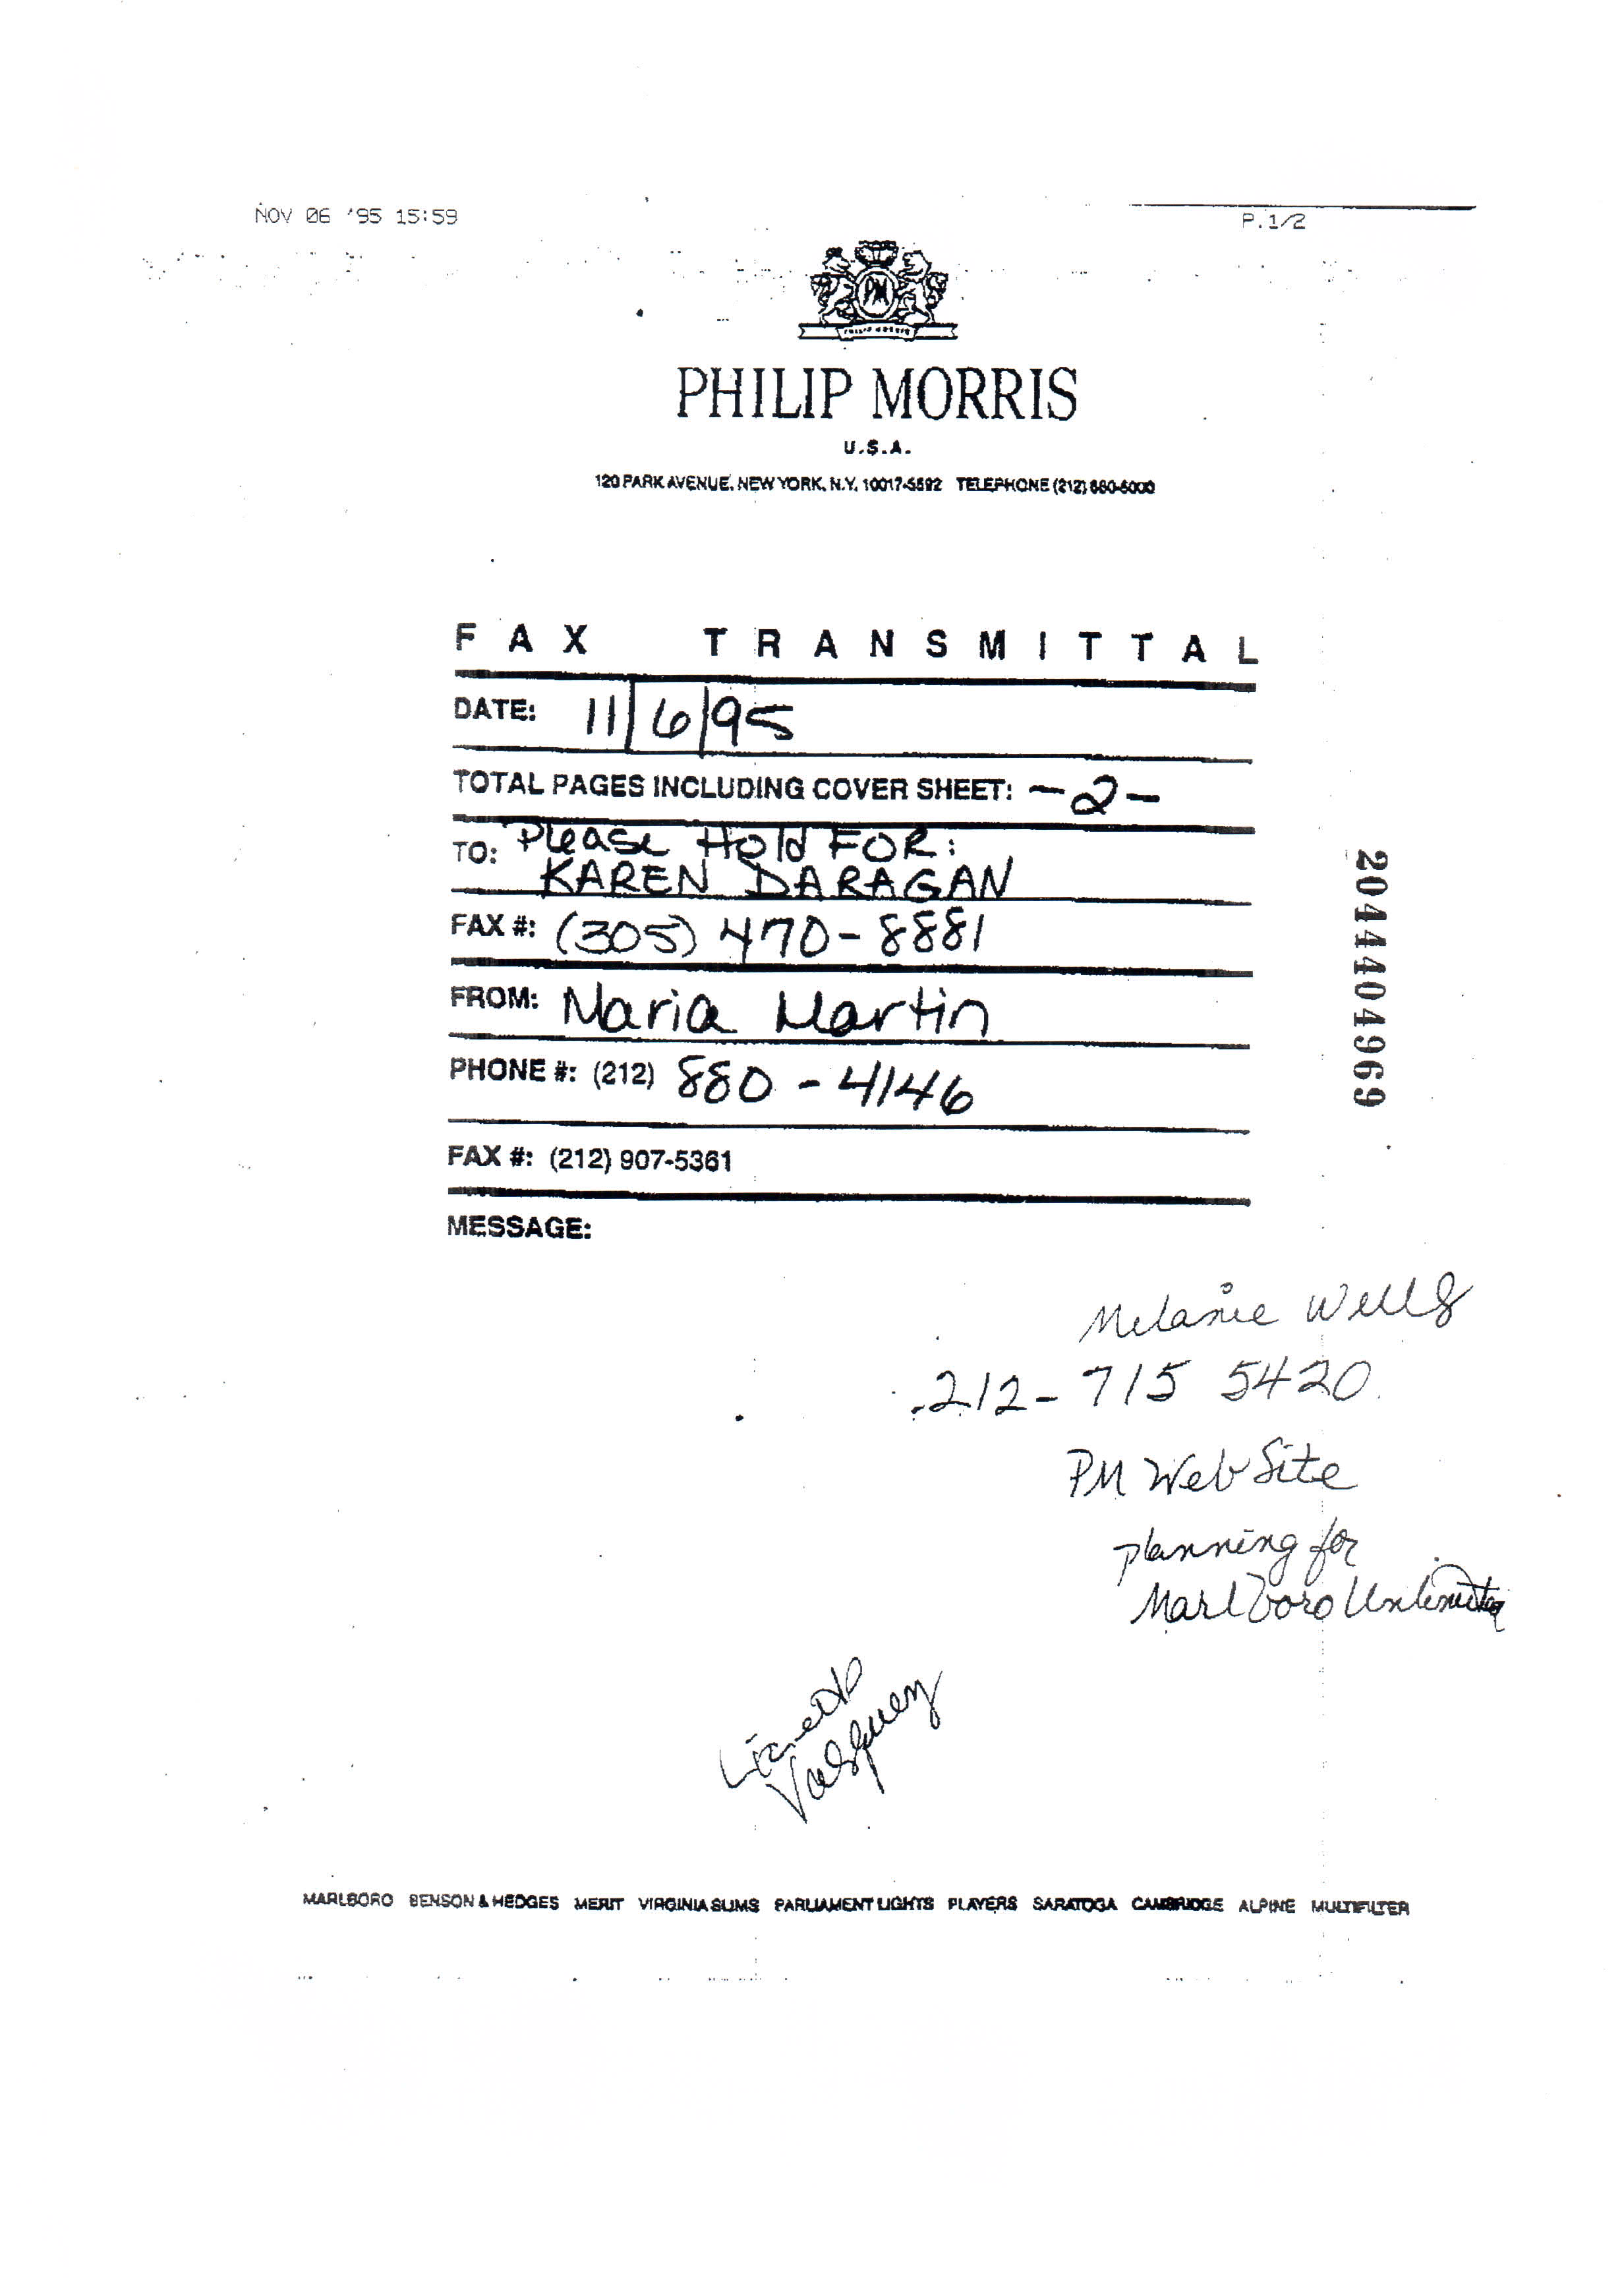 NOV 06 '95 15:59
P.1/2
PM
PHILIP MORRIS
U.S.A.
120 PARK AVENUE, NEW YORK, N.Y. 10017-5592 TELEPHONE (212) 880-5000
FAX TRANSMITTAL
DATE: 11/6/95
TOTAL PAGES INCLUDING COVER SHEET: -2-
TO: Please Hold FOR:
KAREN DARAGAN
FAX #: (305) 470-8881
FROM: Maria Martin
PHONE #: (212) 880-4146
FAX #: (212) 907-5361
MESSAGE:
2044404969
Melanie Wells
212-715 5420
PM Web Site
planning for
Marlboro Unlimited
Vasquez
MARLBORO BENSON & HEDGES MERIT VIRGINIA SLIMS PARLIAMENT LIGHTS PLAYERS SARATOGA CAMBRIDGE ALPINE MULTIFILTER